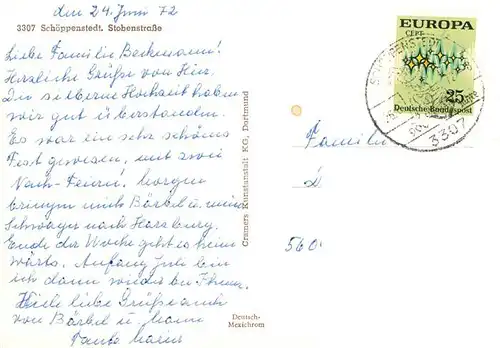 den 24. Juni 72
3307 Schöppenstedt, Stobenstraße
Liebe Familie Beckmann!
Herzliche Grüße von hier.
Die silberne Hochzeit haben
wir gut überstanden.
Es war ein sehr schönes
Fest gewesen, mit zwei
Nach-Feiern! Morgen
bringen mich Bärbel u. mein
Schwager nach Harzburg.
Ende der Woche geht es heim
wärts. Anfang Juli bin
ich dann wieder bei Ihnen.
Viele liebe Grüße auch
von Bärbel u. Mann
Tante
Cramers Kunstanstalt KG, Dortmund
Deutsch-
Mexichrom
EUROPA
CEPT
25
Deutsche Bundespost
3307
Familie
560